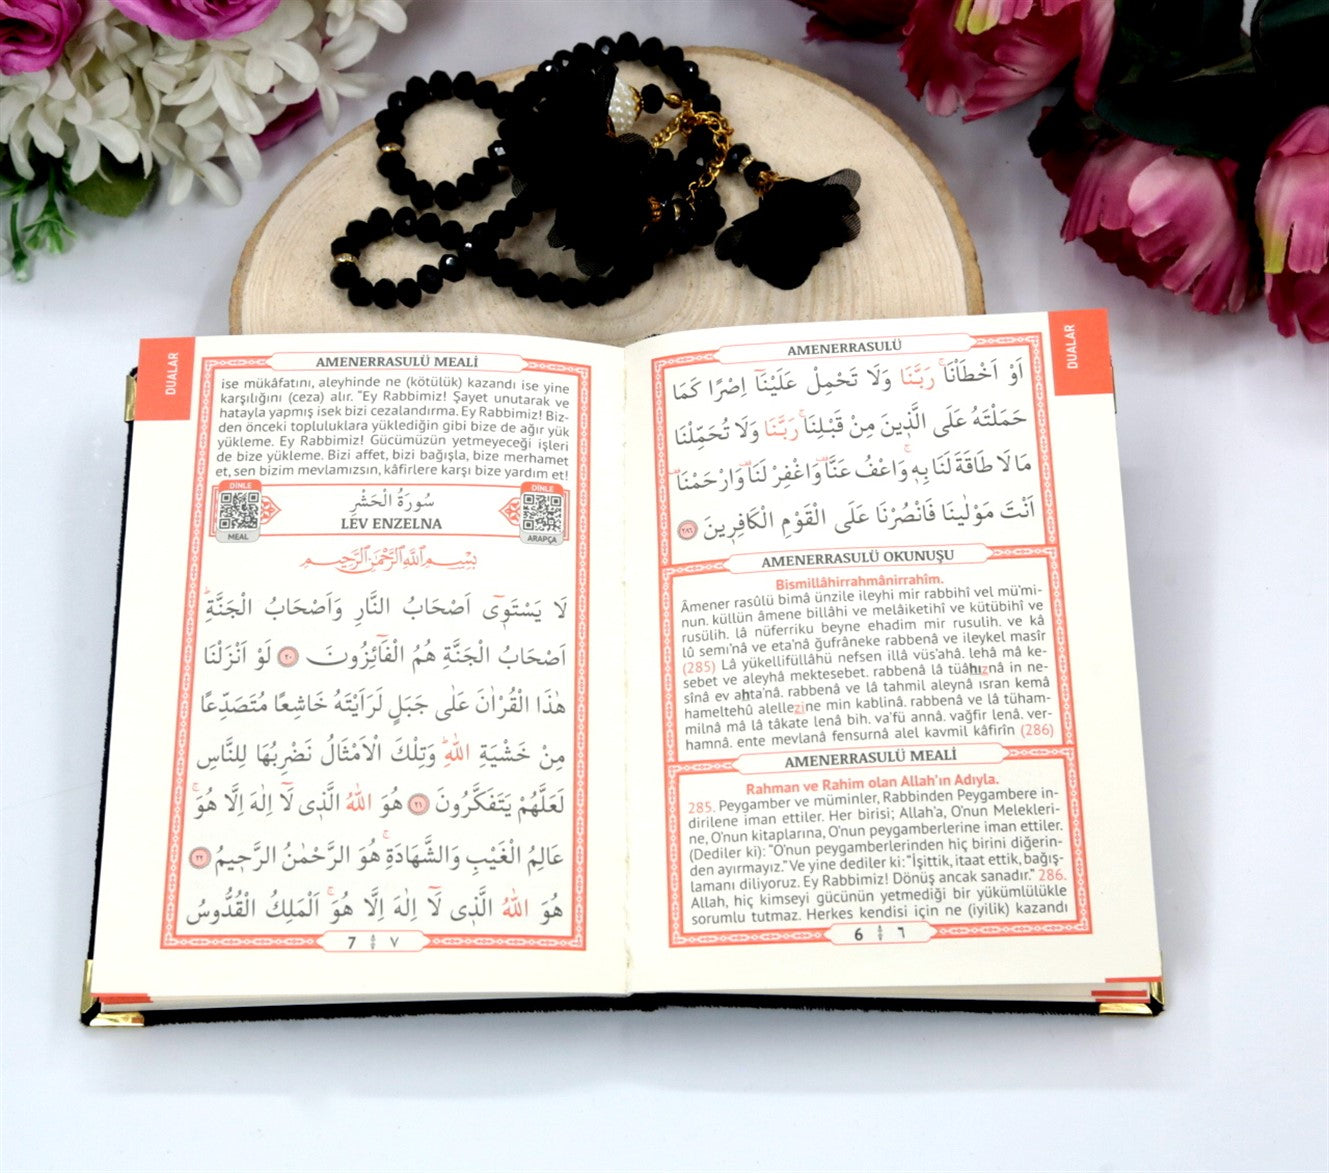 DUALAR
AMENERRASULÜ
اَوْ اَخْطَأْنَاۚ رَبَّنَا وَلَا تَحْمِلْ عَلَيْنَٓا اِصْرًا كَمَا
حَمَلْتَهُ عَلَى الَّذٖينَ مِنْ قَبْلِنَاۚ رَبَّنَا وَلَا تُحَمِّلْنَا
مَا لَا طَاقَةَ لَنَا بِهٖۚ وَاعْفُ عَنَّا۠ وَاغْفِرْ لَنَا۠ وَارْحَمْنَا۠
اَنْتَ مَوْلٰينَا فَانْصُرْنَا عَلَى الْقَوْمِ الْكَافِرٖينَ ﴿٢٨٦﴾
AMENERRASULÜ OKUNUŞU
Bismillâhirrahmânirrahîm.
Âmener rasûlü bimâ ünzile ileyhi mir rabbihî vel mü'mi-
nun. küllün âmene billâhi ve melâiketihî ve kütübihî ve
rusülih. lâ nüferriku beyne ehadim mir rusulih. ve kâ
lû semı'nâ ve eta'nâ ğufrâneke rabbenâ ve ileykel masîr
(285) Lâ yükellifüllâhü nefsen illâ vüs'ahâ. lehâ mâ ke-
sebet ve aleyhâ mektesebet. rabbenâ lâ tüâhıznâ in ne-
sînâ ev ahta'nâ. rabbenâ ve lâ tahmil aleynâ ısran kemâ
hameltehû alellezine min kablinâ. rabbenâ ve lâ tüham-
milnâ mâ lâ tâkate lenâ bih. va'fü annâ. vağfir lenâ. ver-
hamnâ. ente mevlanâ fensurnâ alel kavmil kâfirîn (286)
AMENERRASULÜ MEALİ
Rahman ve Rahim olan Allah'ın Adıyla.
285. Peygamber ve müminler, Rabbinden Peygambere in-
dirilene iman ettiler. Her birisi; Allah'a, O'nun Melekleri-
ne, O'nun kitaplarına, O'nun peygamberlerine iman ettiler.
(Dediler ki): "O'nun peygamberlerinden hiç birini diğerin-
den ayırmayız." Ve yine dediler ki: "İşittik, itaat ettik, bağış-
lamanı diliyoruz. Ey Rabbimiz! Dönüş ancak sanadır." 286.
Allah, hiç kimseyi gücünün yetmediği bir yükümlülükle
sorumlu tutmaz. Herkes kendisi için ne (iyilik) kazandı
6 ٦
DUALAR
AMENERRASULÜ MEALİ
ise mükâfatını, aleyhinde ne (kötülük) kazandı ise yine
karşılığını (ceza) alır. "Ey Rabbimiz! Şayet unutarak ve
hatayla yapmış isek bizi cezalandırma. Ey Rabbimiz! Biz-
den önceki topluluklara yüklediğin gibi bize de ağır yük
yükleme. Ey Rabbimiz! Gücümüzün yetmeyeceği işleri
de bize yükleme. Bizi affet, bizi bağışla, bize merhamet
et, sen bizim mevlamızsın, kâfirlere karşı bize yardım et!
DİNLE
MEAL
سُورَةُ الْحَشْرِ
LEV ENZELNA
DİNLE
ARAPÇA
بِسْمِ اللّٰهِ الرَّحْمٰنِ الرَّحٖيمِ
لَا يَسْتَوٖٓى اَصْحَابُ النَّارِ وَاَصْحَابُ الْجَنَّةِؕ
اَصْحَابُ الْجَنَّةِ هُمُ الْفَٓائِزُونَ ﴿٢٠﴾ لَوْ اَنْزَلْنَا
هٰذَا الْقُرْاٰنَ عَلٰى جَبَلٍ لَرَاَيْتَهُ خَاشِعًا مُتَصَدِّعًا
مِنْ خَشْيَةِ اللّٰهِؕ وَتِلْكَ الْاَمْثَالُ نَضْرِبُهَا لِلنَّاسِ
لَعَلَّهُمْ يَتَفَكَّرُونَ ﴿٢١﴾ هُوَ اللّٰهُ الَّذٖى لَٓا اِلٰهَ اِلَّا هُوَۚ
عَالِمُ الْغَيْبِ وَالشَّهَادَةِۚ هُوَ الرَّحْمٰنُ الرَّحٖيمُ ﴿٢٢﴾
هُوَ اللّٰهُ الَّذٖى لَٓا اِلٰهَ اِلَّا هُوَۚ اَلْمَلِكُ الْقُدُّوسُ
7 ٧